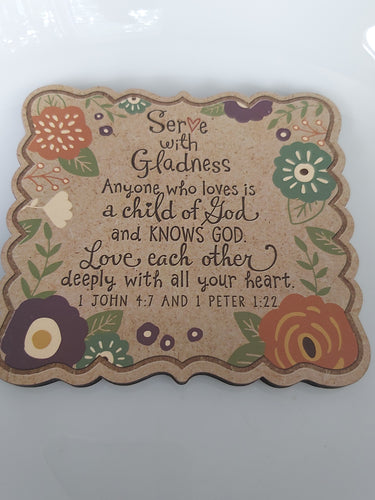 Serve
with
Gladness
Anyone who loves is
a child of God
and KNOWS GOD.
Love each other
deeply with all your heart.
1 JOHN 4:7 AND 1 PETER 1:22